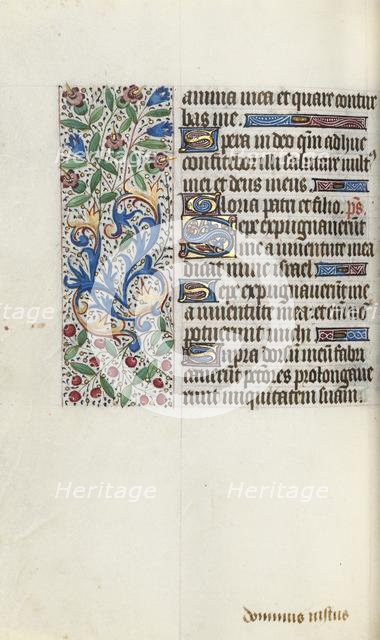 anima mea et quare contur
bas me
Spera in deo qm adhuc
confitebor illi salutare vult
mei et deus meus
Gloria patri et filio. ps
Sepe expugnaverut
me a iuventute mea
dicat nunc israel
Sepe expugnaverut me
a iuventute mea et eni
potuerunt michi
Supra dorsu meu fabri
caverut pctores prolongave
runt iniquitatem suam.
dominus iustus
Heritage
Heritage
Heritage
Heritage
Heritage
Heritage